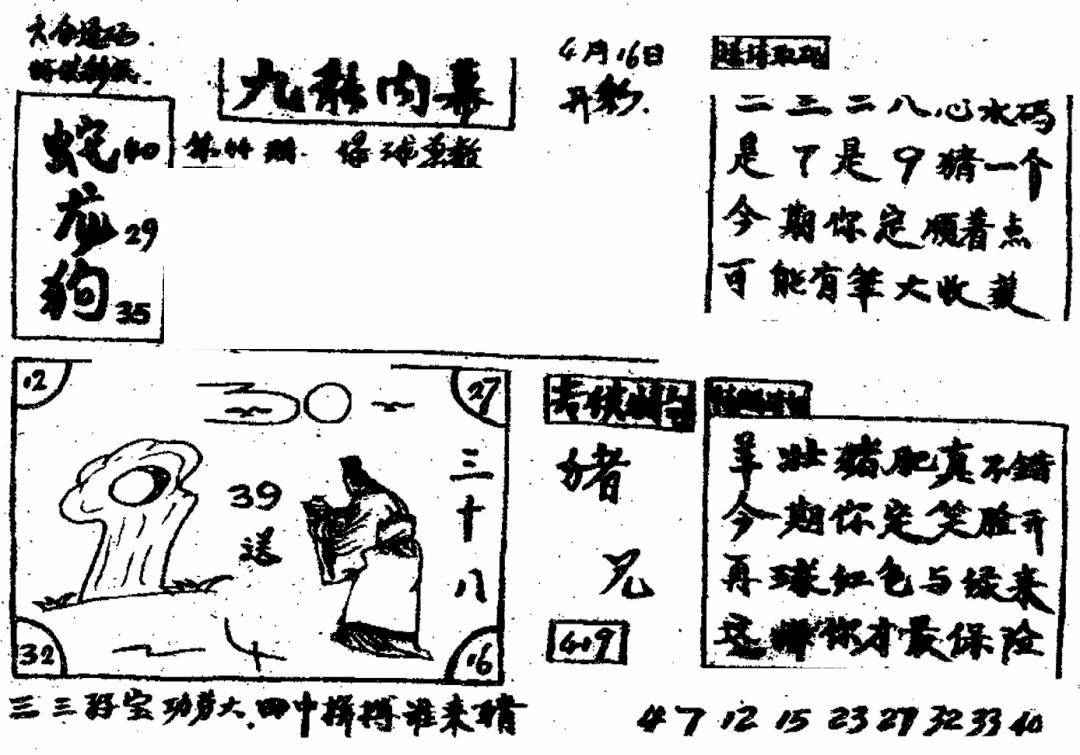 4月16日
开彩.
九龙内幕
第44期
蛇40
龙29
狗35
二三二八心水码
是7是9猜一个
今期你定顺着点
可能有笔大收获
12
27
39
送
三十八
32
16
猪
兄
羊壮猪肥真不错
今期你定笑脸开
再球红色与绿来
这样你才最保险
三三好宝功劳大.田中拼搏谁来猜
4 7 12 15 23 27 32 33 40